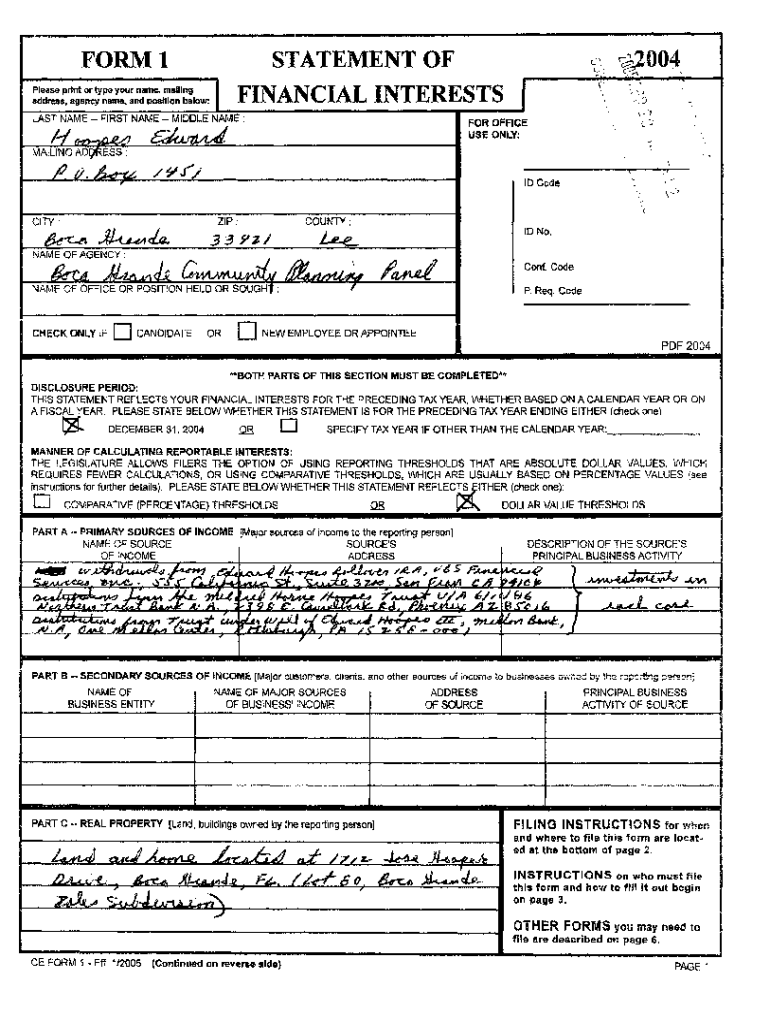 FORM 1 STATEMENT OF 2004
FINANCIAL INTERESTS
Please print or type your name, mailing
address, agency name, and position below:
LAST NAME -- FIRST NAME -- MIDDLE NAME :
Hoopes Edward
MAILING ADDRESS :
P.O. Box 1451
CITY : ZIP : COUNTY :
Boca Grande 33921 Lee
NAME OF AGENCY :
Boca Grande Community Planning Panel
NAME OF OFFICE OR POSITION HELD OR SOUGHT :
CHECK ONLY IF CANDIDATE OR NEW EMPLOYEE OR APPOINTEE
FOR OFFICE
USE ONLY:
ID Code
ID No.
Conf. Code
P. Req. Code
PDF 2004
**BOTH PARTS OF THIS SECTION MUST BE COMPLETED**
DISCLOSURE PERIOD:
THIS STATEMENT REFLECTS YOUR FINANCIAL INTERESTS FOR THE PRECEDING TAX YEAR, WHETHER BASED ON A CALENDAR YEAR OR ON
A FISCAL YEAR. PLEASE STATE BELOW WHETHER THIS STATEMENT IS FOR THE PRECEDING TAX YEAR ENDING EITHER (check one)
DECEMBER 31, 2004 OR SPECIFY TAX YEAR IF OTHER THAN THE CALENDAR YEAR:
MANNER OF CALCULATING REPORTABLE INTERESTS:
THE LEGISLATURE ALLOWS FILERS THE OPTION OF USING REPORTING THRESHOLDS THAT ARE ABSOLUTE DOLLAR VALUES, WHICH
REQUIRES FEWER CALCULATIONS, OR USING COMPARATIVE THRESHOLDS, WHICH ARE USUALLY BASED ON PERCENTAGE VALUES (see
instructions for further details). PLEASE STATE BELOW WHETHER THIS STATEMENT REFLECTS EITHER (check one):
COMPARATIVE (PERCENTAGE) THRESHOLDS OR DOLLAR VALUE THRESHOLDS
PART A -- PRIMARY SOURCES OF INCOME [Major sources of income to the reporting person]
NAME OF SOURCE SOURCE'S DESCRIPTION OF THE SOURCE'S
OF INCOME ADDRESS PRINCIPAL BUSINESS ACTIVITY
withdrawals from Edward Hoopes Rollover IRA, UBS Financial
Services, Inc. 555 California St, Suite 3200, San Fran CA 94104 investments in
distributions from the Mildred Horne Hoopes Trust U/A 6/10/86
Northern Trust Bank N.A., 2398 E. Camelback Rd, Phoenix AZ 85016 each case
distributions from Trust under Will of Edward Hoopes III, Mellon Bank,
N.A, One Mellon Center, Pittsburgh, PA 15258-0001
PART B -- SECONDARY SOURCES OF INCOME [Major customers, clients, and other sources of income to businesses owned by the reporting person]
NAME OF NAME OF MAJOR SOURCES ADDRESS PRINCIPAL BUSINESS
BUSINESS ENTITY OF BUSINESS' INCOME OF SOURCE ACTIVITY OF SOURCE
PART C -- REAL PROPERTY [Land, buildings owned by the reporting person]
Land and home located at 1712 Jose Gaspar
Drive, Boca Grande, FL (Lot 50, Boca Grande
Isles Subdivision)
FILING INSTRUCTIONS for when
and where to file this form are locat-
ed at the bottom of page 2.
INSTRUCTIONS on who must file
this form and how to fill it out begin
on page 3.
OTHER FORMS you may need to
file are described on page 6.
CE FORM 1 - Eff. 1/2005 (Continued on reverse side) PAGE 1